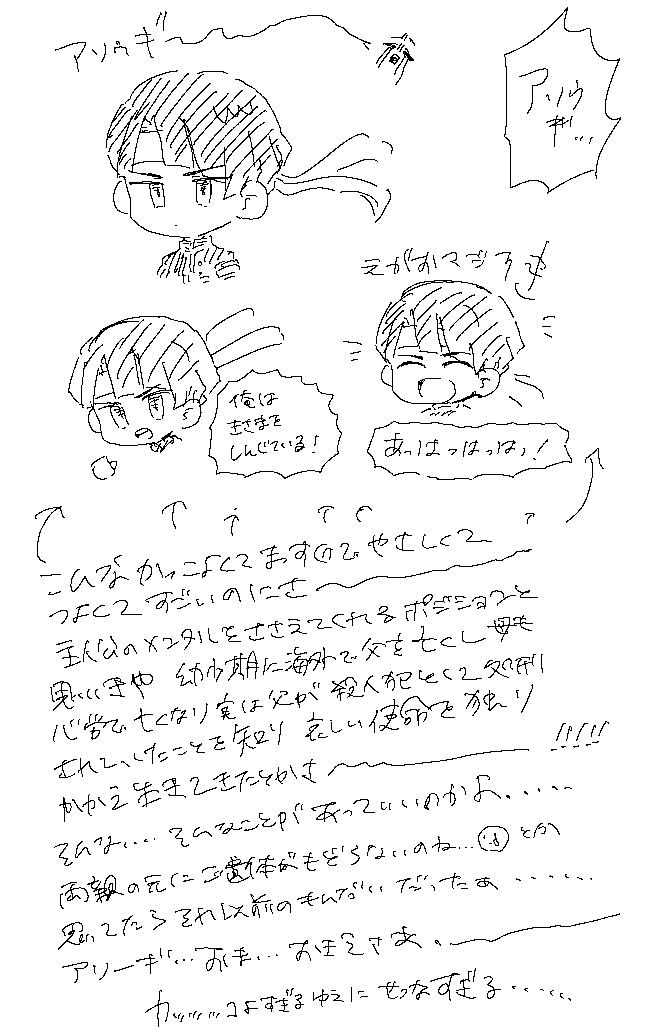 アソウギ〜
アソウギ...
えがおマブライ
俺は
きさまを
しんじている!
あっはっはっはっ!
こんなかっこよくてまっすぐでやさしくて
つよくてすごいのにさ〜
主人公のメンタルをささえてくれるポジションと
思いきや 幼少期に海外で父を亡くし 母も
心労で亡くなり実は父が殺人犯として処刑
されていたことを知り 哀しい使命を独り
かかえ生きてきたとかさ〜!!!!!
そんな...そんなことがあっていいのかよ......
両親の元にご遺体がもどらないのね...とか
思ってたらそれ以前のもんだいだったぁ......
アソーギ...おま...おまえさぁ。〜
カッッッッコよすぎるゆえにせつなすぎる......